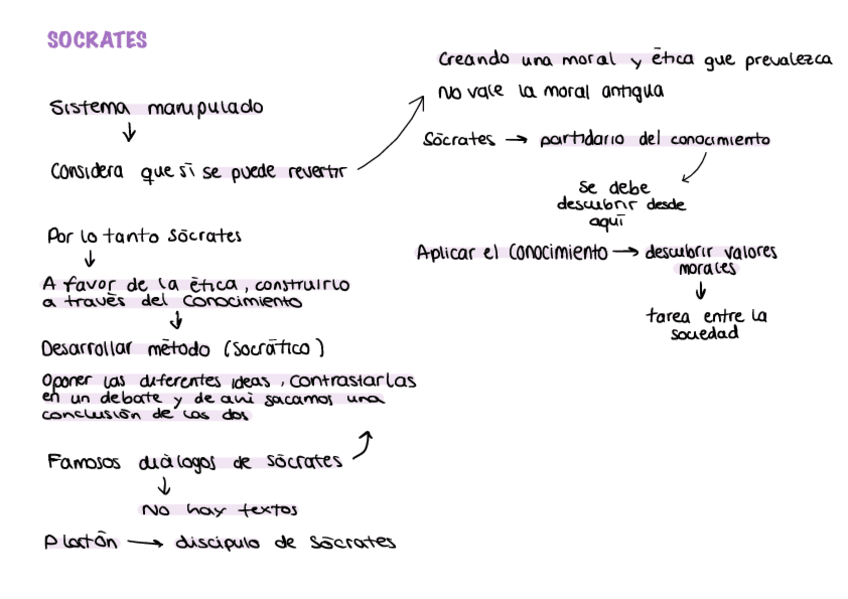 SOCRATES
Sistema manipulado
↓
Considera que si se puede revertir
Creando una moral y ética que prevalezca
No vale la moral antigua
Sócrates → partidario del conocimiento
se debe
descubrir desde
aquí
Aplicar el conocimiento → descubrir valores
morales
↓
tarea entre la
sociedad
Por lo tanto Sócrates
↓
A favor de la ética, construirlo
a través del conocimiento
↓
Desarrollar método (Socrático)
Oponer las diferentes ideas, contrastarlas
en un debate y de ahí sacamos una
conclusión de los dos
Famosos diálogos de Sócrates
↓
No hay textos
Platón → discípulo de Sócrates